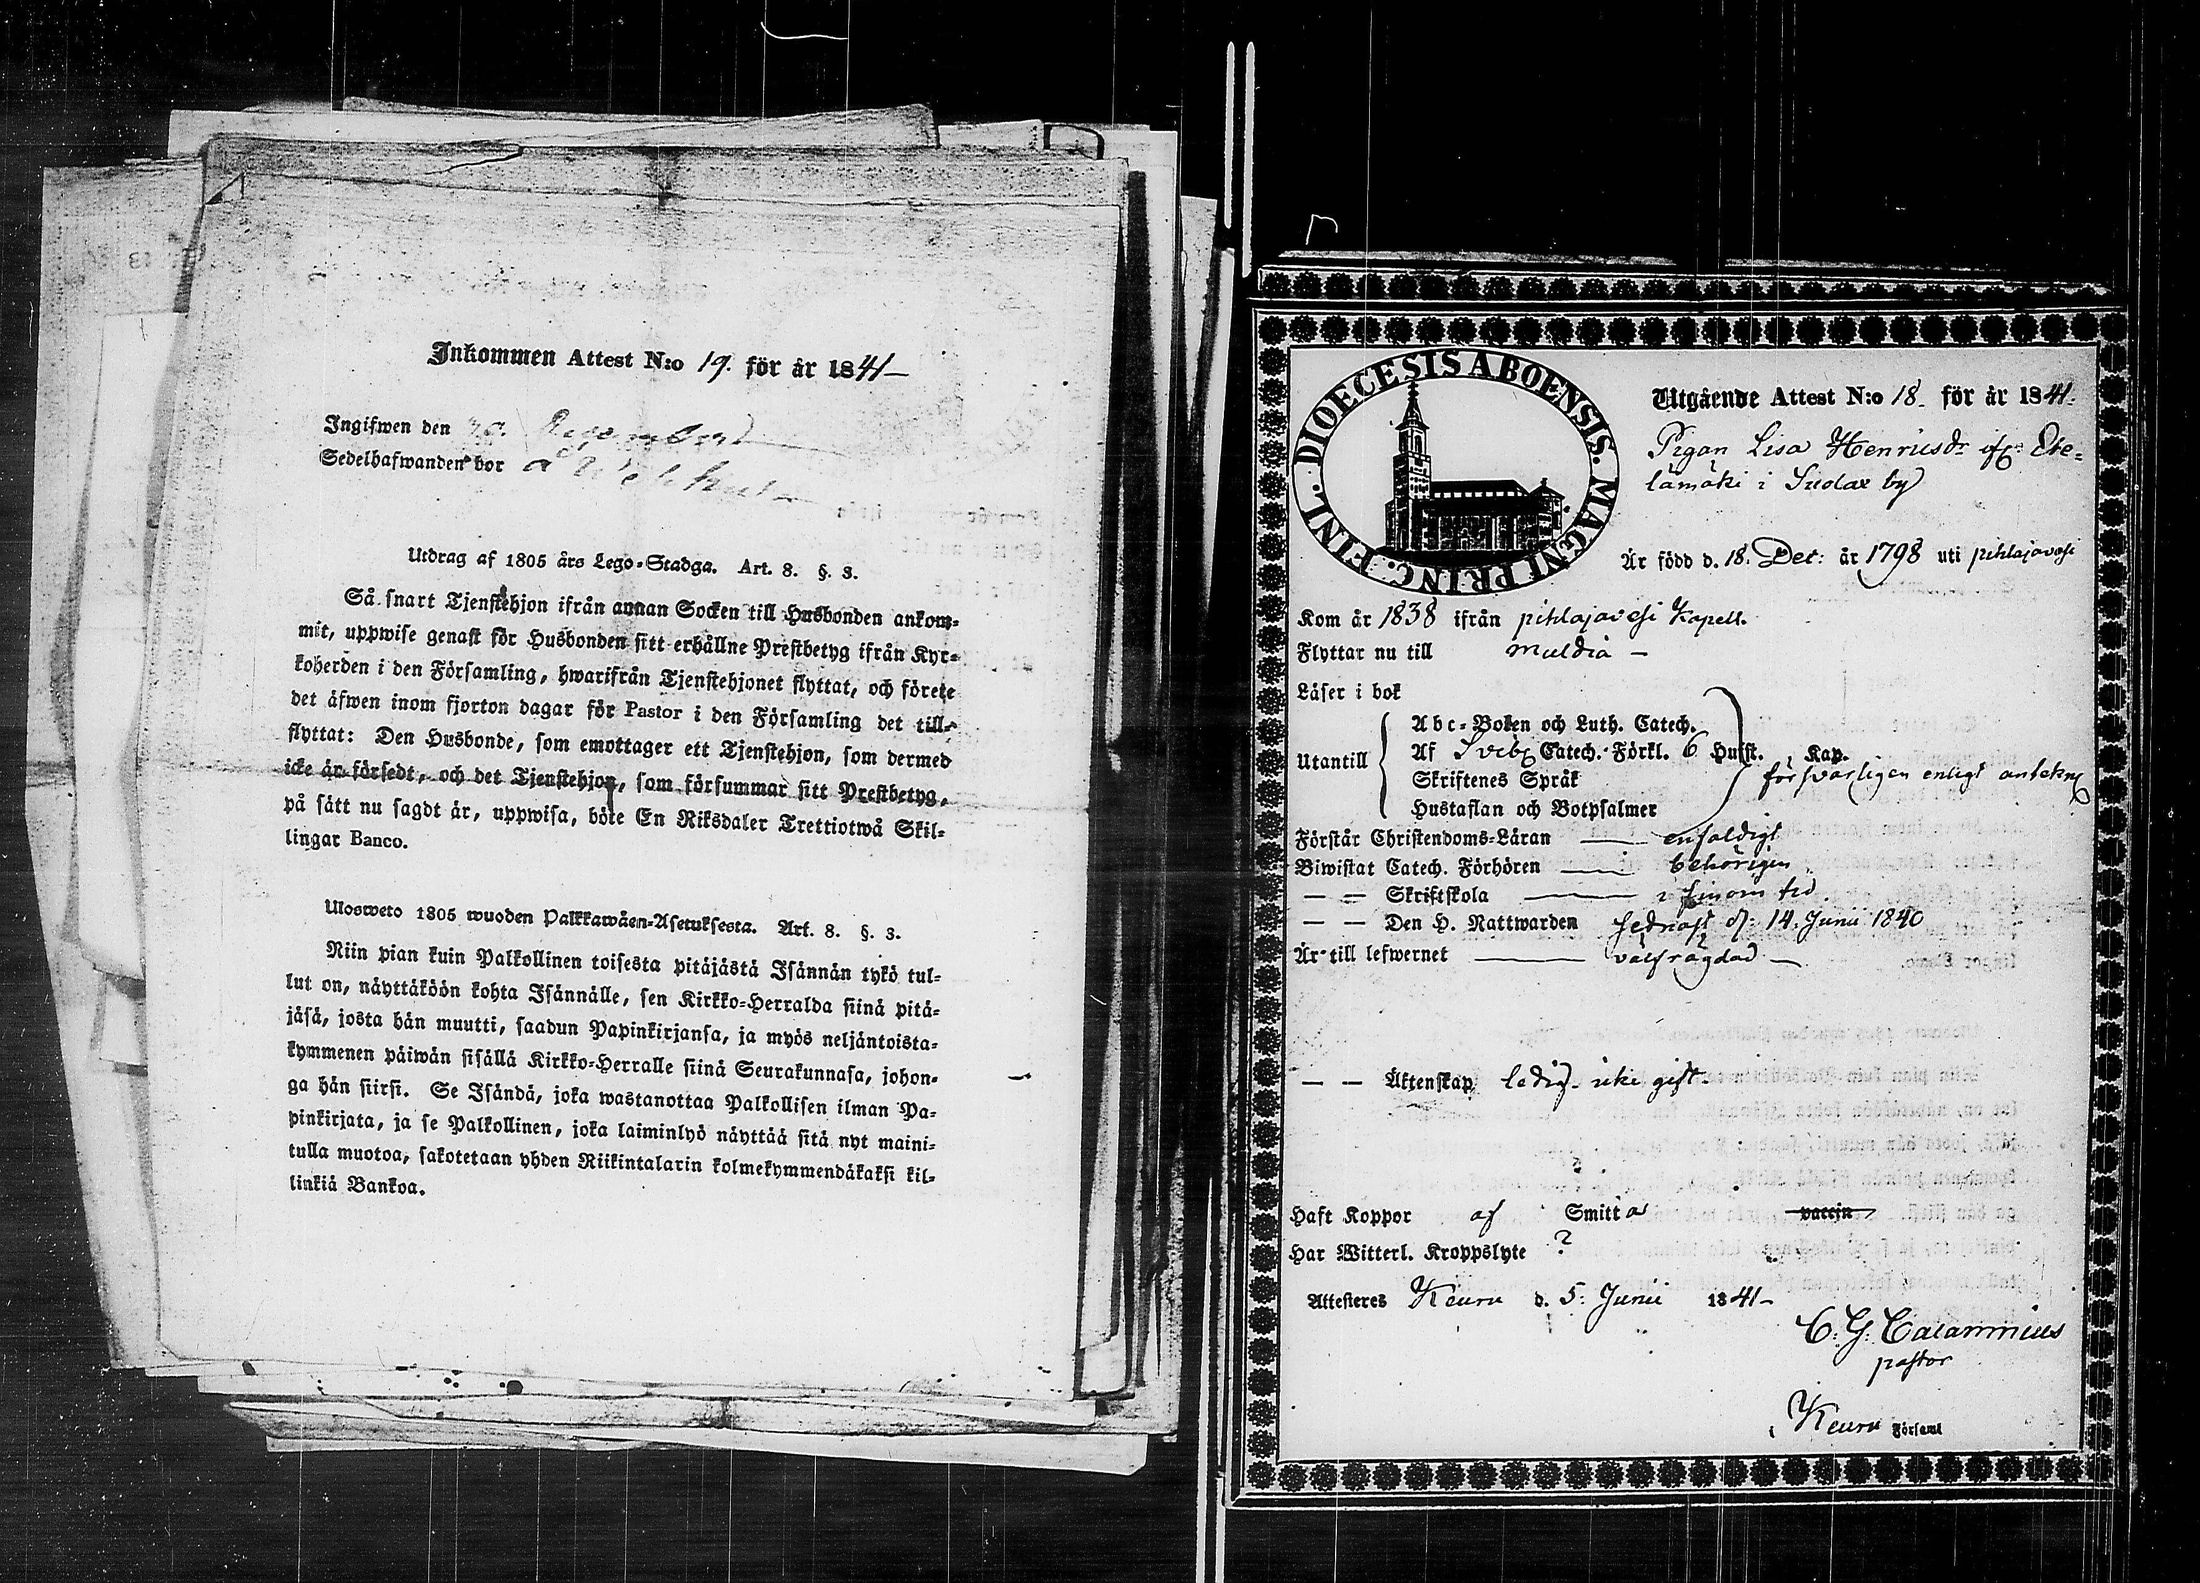 Inkommen Attest N:o 19. för år 1841
Ingifwen den
Sedelhafwanden bor å
Utdrag af 1805 års Lego-Stadga. Art. 8. §. 3.
Så snart Tjenstehjon ifrån annan Socken till Husbonden ankom-
mit, uppwise genast för Husbonden sitt erhållne Prestbetyg ifrån Kyr-
koherden i den Församling, hwarifrån Tjenstehjonet flyttat, och förete
det äfwen inom fjorton dagar för Pastor i den Församling det till-
flyttat: Den Husbonde, som emottager ett Tjenstehjon, som dermed
icke är försedt, och det Tjenstehjon, som försummar sitt Prestbetyg,
på sätt nu sagdt är, uppwisa, böte En Riksdaler Trettiotwå Skil-
lingar Banco.
Ulosweto 1805 wuoden Palkkawäen-Asetuksesta. Art. 8. §. 3.
Niin pian kuin Palkollinen toisesta pitäjästä Isännän tykö tul-
lut on, näyttäköön kohta Isännälle, sen Kirkko-Herralda siinä pitä-
jäsä, josta hän muutti, saadun Papinkirjansa, ja myös neljäntoista-
kymmenen päiwän sisällä Kirkko-Herralle siinä Seurakunnasa, johon-
ga hän siirsi. Se Isändä, joka wastanottaa Palkollisen ilman Pa-
pinkirjata, ja se Palkollinen, joka laiminlyö näyttää sitä nyt maini-
tulla muotoa, sakotetaan yhden Riikintalarin kolmekymmendäkaksi kil-
linkiä Bankoa.
DIOECESIS ABOENSIS. MAGNI PRINC. FINL.
Utgående Attest N:o 18. för år 1841.
Pigan Lisa Henricsdr ifr. Ete-
lämäki i Suolax by
Är född d. 18. Dec: år 1798 uti pihlajavesi
Kom år 1838 ifrån pihlajavesi Kapell.
Flyttar nu till muldia -
Läser i bok
Utantill
Abc-Boken och Luth. Catech.
Af Sveb. Catech. Förkl. 6 Hufst. Kap.
Skriftenes Språk försvarligen enligt
Hustaflan och Botpsalmer
Förstår Christendoms-Läran enfaldigt
Biwistat Catech. Förhören behörigen
— — Skriftskola i sinom tid
— — Den H. Nattwarden sednast d: 14. Junii 1840
Är till lefwernet välfrägdad
— — Äktenskap ledig. icke gift.
Haft Koppor af Smitta vaccin
Har Witterl. Kroppslyte ?
Attesteres Keuru d. 5: Junii 1841
C: G: Calamnius
pastor
i Keuru Församl